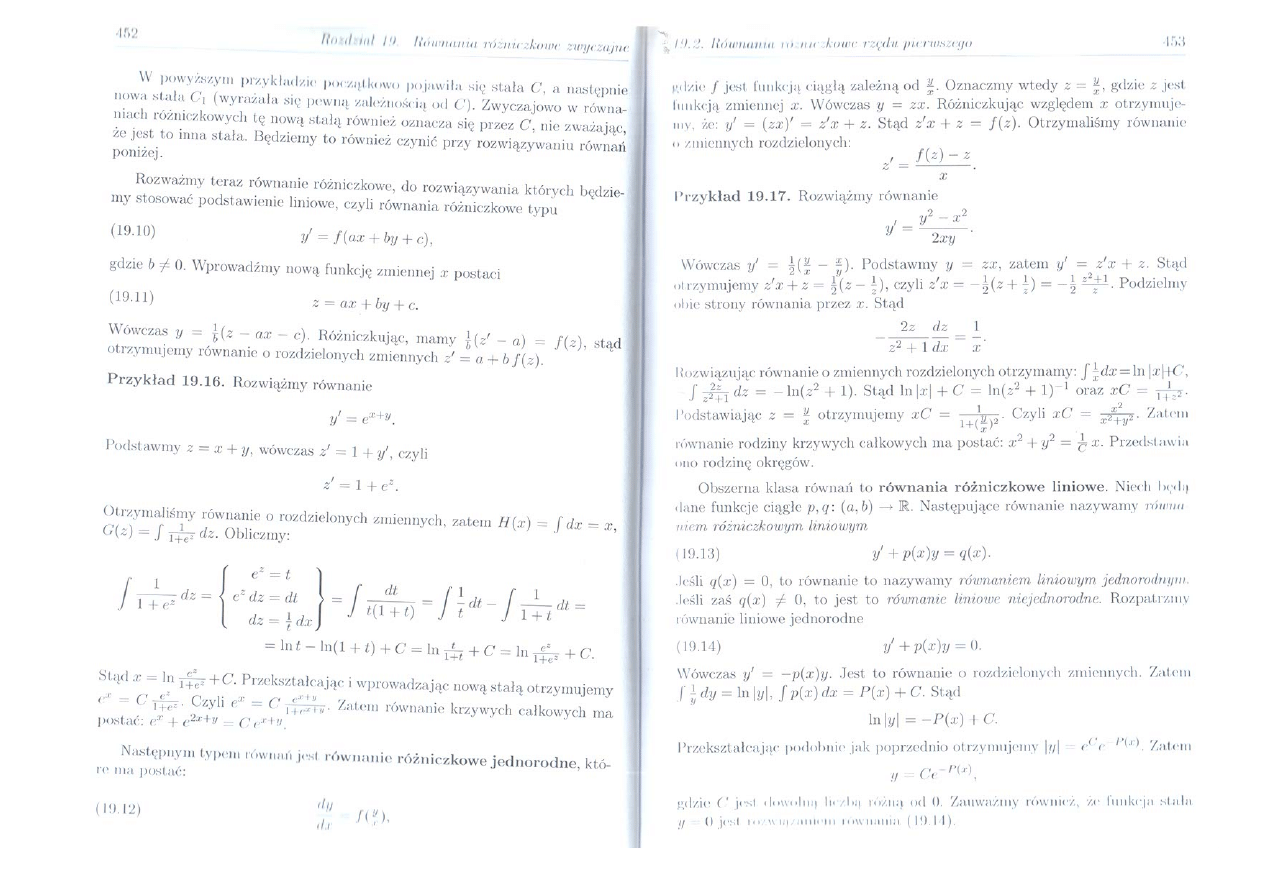 452
Rozdział 19. Równania różniczkowe zwyczajne
W powyższym przykładzie początkowo pojawiła się stała C, a następnie
nowa stała C₁ (wyrażała się pewną zależnością od C). Zwyczajowo w równa-
niach różniczkowych tę nową stałą również oznacza się przez C, nie zważając,
że jest to inna stała. Będziemy to również czynić przy rozwiązywaniu równań
poniżej.
Rozważmy teraz równanie różniczkowe, do rozwiązywania których będzie-
my stosować podstawienie liniowe, czyli równania różniczkowe typu
(19.10) y′ = f(ax + by + c),
gdzie b ≠ 0. Wprowadźmy nową funkcję zmiennej x postaci
(19.11) z = ax + by + c.
Wówczas y = 1/b(z − ax − c). Różniczkując, mamy 1/b(z′ − a) = f(z), stąd
otrzymujemy równanie o rozdzielonych zmiennych z′ = a + b f(z).
Przykład 19.16. Rozwiążmy równanie
y′ = e^{x+y}.
Podstawmy z = x + y, wówczas z′ = 1 + y′, czyli
z′ = 1 + e^z.
Otrzymaliśmy równanie o rozdzielonych zmiennych, zatem H(x) = ∫ dx = x,
G(z) = ∫ 1/(1+e^z) dz. Obliczmy:
∫ 1/(1 + e^z) dz = { e^z = t; e^z dz = dt; dz = 1/t dx } = ∫ dt/(t(1 + t)) = ∫ 1/t dt − ∫ 1/(1 + t) dt =
= ln t − ln(1 + t) + C = ln t/(1+t) + C = ln e^z/(1+e^z) + C.
Stąd x = ln e^z/(1+e^z) + C. Przekształcając i wprowadzając nową stałą otrzymujemy
e^x = C e^z/(1+e^z). Czyli e^x = C e^{x+y}/(1+e^{x+y}). Zatem równanie krzywych całkowych ma
postać: e^x + e^{2x+y} = C e^{x+y}.
Następnym typem równań jest równanie różniczkowe jednorodne, któ-
re ma postać:
(19.12) dy/dx = f(y/x),
19.2. Równania różniczkowe rzędu pierwszego
453
gdzie f jest funkcją ciągłą zależną od y/x. Oznaczmy wtedy z = y/x, gdzie z jest
funkcją zmiennej x. Wówczas y = zx. Różniczkując względem x otrzymuje-
my, że: y′ = (zx)′ = z′x + z. Stąd z′x + z = f(z). Otrzymaliśmy równanie
o zmiennych rozdzielonych:
z′ = (f(z) − z)/x.
Przykład 19.17. Rozwiążmy równanie
y′ = (y² − x²)/(2xy).
Wówczas y′ = 1/2(y/x − x/y). Podstawmy y = zx, zatem y′ = z′x + z. Stąd
otrzymujemy z′x + z = 1/2(z − 1/z), czyli z′x = −1/2(z + 1/z) = −1/2 (z²+1)/z. Podzielmy
obie strony równania przez x. Stąd
− 2z/(z² + 1) dz/dx = 1/x.
Rozwiązując równanie o zmiennych rozdzielonych otrzymamy: ∫ 1/x dx = ln |x|+C,
− ∫ 2z/(z²+1) dz = − ln(z² + 1). Stąd ln |x| + C = ln(z² + 1)⁻¹ oraz xC = 1/(1+z²).
Podstawiając z = y/x otrzymujemy xC = 1/(1+(y/x)²). Czyli xC = x²/(x²+y²). Zatem
równanie rodziny krzywych całkowych ma postać: x² + y² = 1/C x. Przedstawia
ono rodzinę okręgów.
Obszerna klasa równań to równania różniczkowe liniowe. Niech będą
dane funkcje ciągłe p, q: (a, b) → ℝ. Następujące równanie nazywamy równa-
niem różniczkowym liniowym
(19.13) y′ + p(x)y = q(x).
Jeśli q(x) = 0, to równanie to nazywamy równaniem liniowym jednorodnym.
Jeśli zaś q(x) ≠ 0, to jest to równanie liniowe niejednorodne. Rozpatrzmy
równanie liniowe jednorodne
(19.14) y′ + p(x)y = 0.
Wówczas y′ = −p(x)y. Jest to równanie o rozdzielonych zmiennych. Zatem
∫ 1/y dy = ln |y|, ∫ p(x) dx = P(x) + C. Stąd
ln |y| = −P(x) + C.
Przekształcając podobnie jak poprzednio otrzymujemy |y| = e^C e^{−P(x)}. Zatem
y = Ce^{−P(x)},
gdzie C jest dowolną liczbą różną od 0. Zauważmy również, że funkcja stała
y = 0 jest rozwiązaniem równania (19.14).